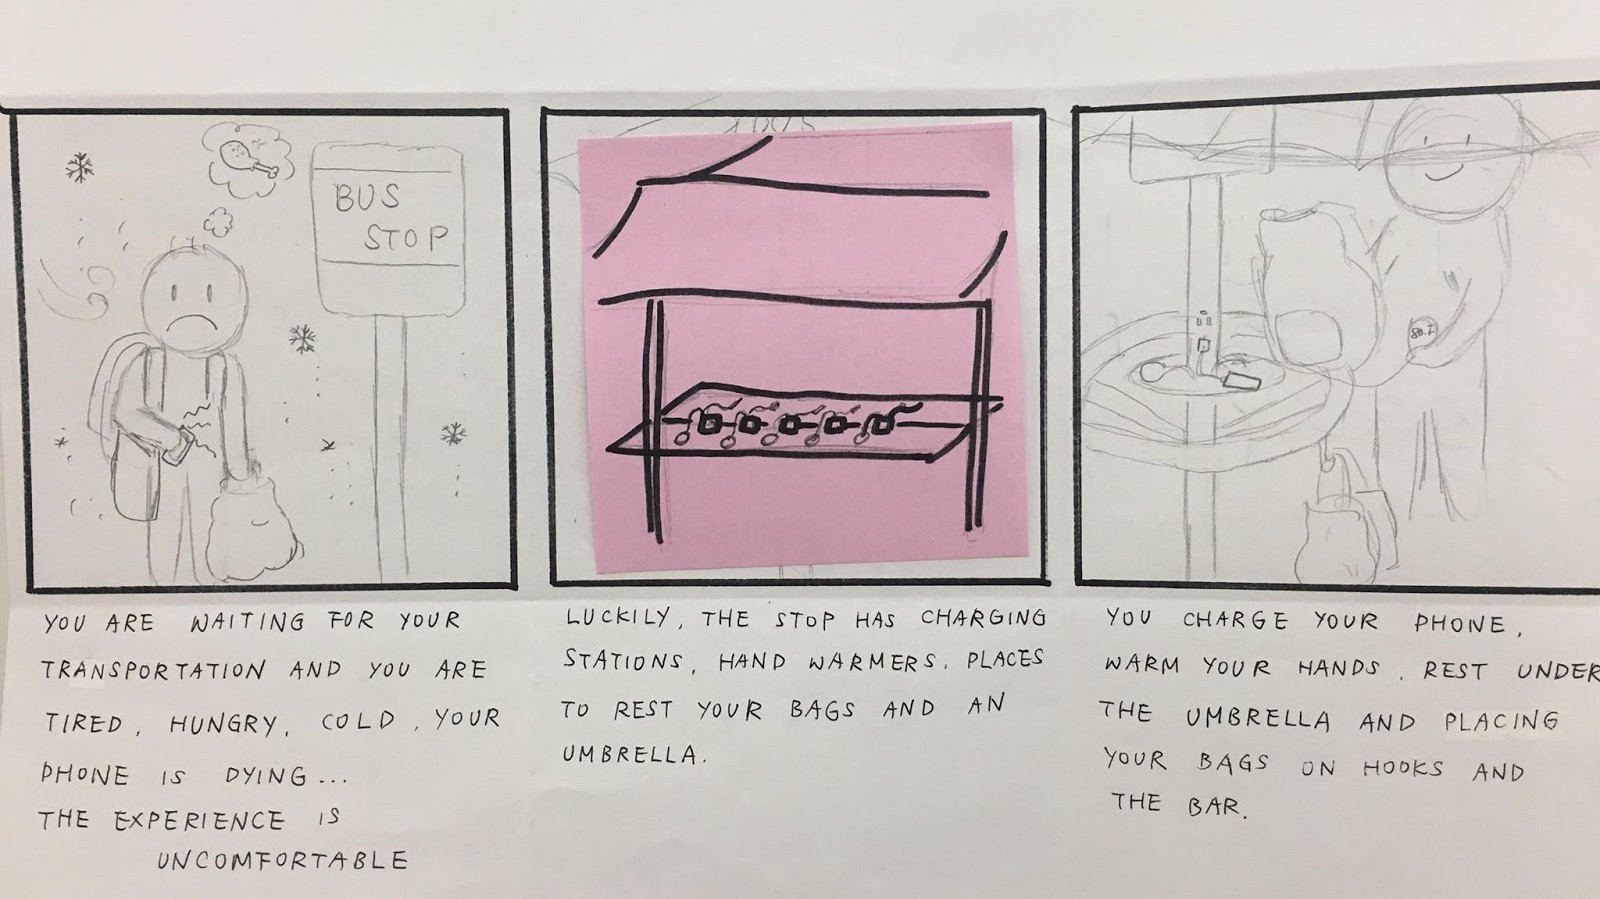 BUS
STOP
YOU ARE WAITING FOR YOUR
TRANSPORTATION AND YOU ARE
TIRED, HUNGRY, COLD, YOUR
PHONE IS DYING...
THE EXPERIENCE IS
UNCOMFORTABLE
LUCKILY, THE STOP HAS CHARGING
STATIONS, HAND WARMERS, PLACES
TO REST YOUR BAGS AND AN
UMBRELLA.
YOU CHARGE YOUR PHONE,
WARM YOUR HANDS, REST UNDER
THE UMBRELLA AND PLACING
YOUR BAGS ON HOOKS AND
THE BAR.